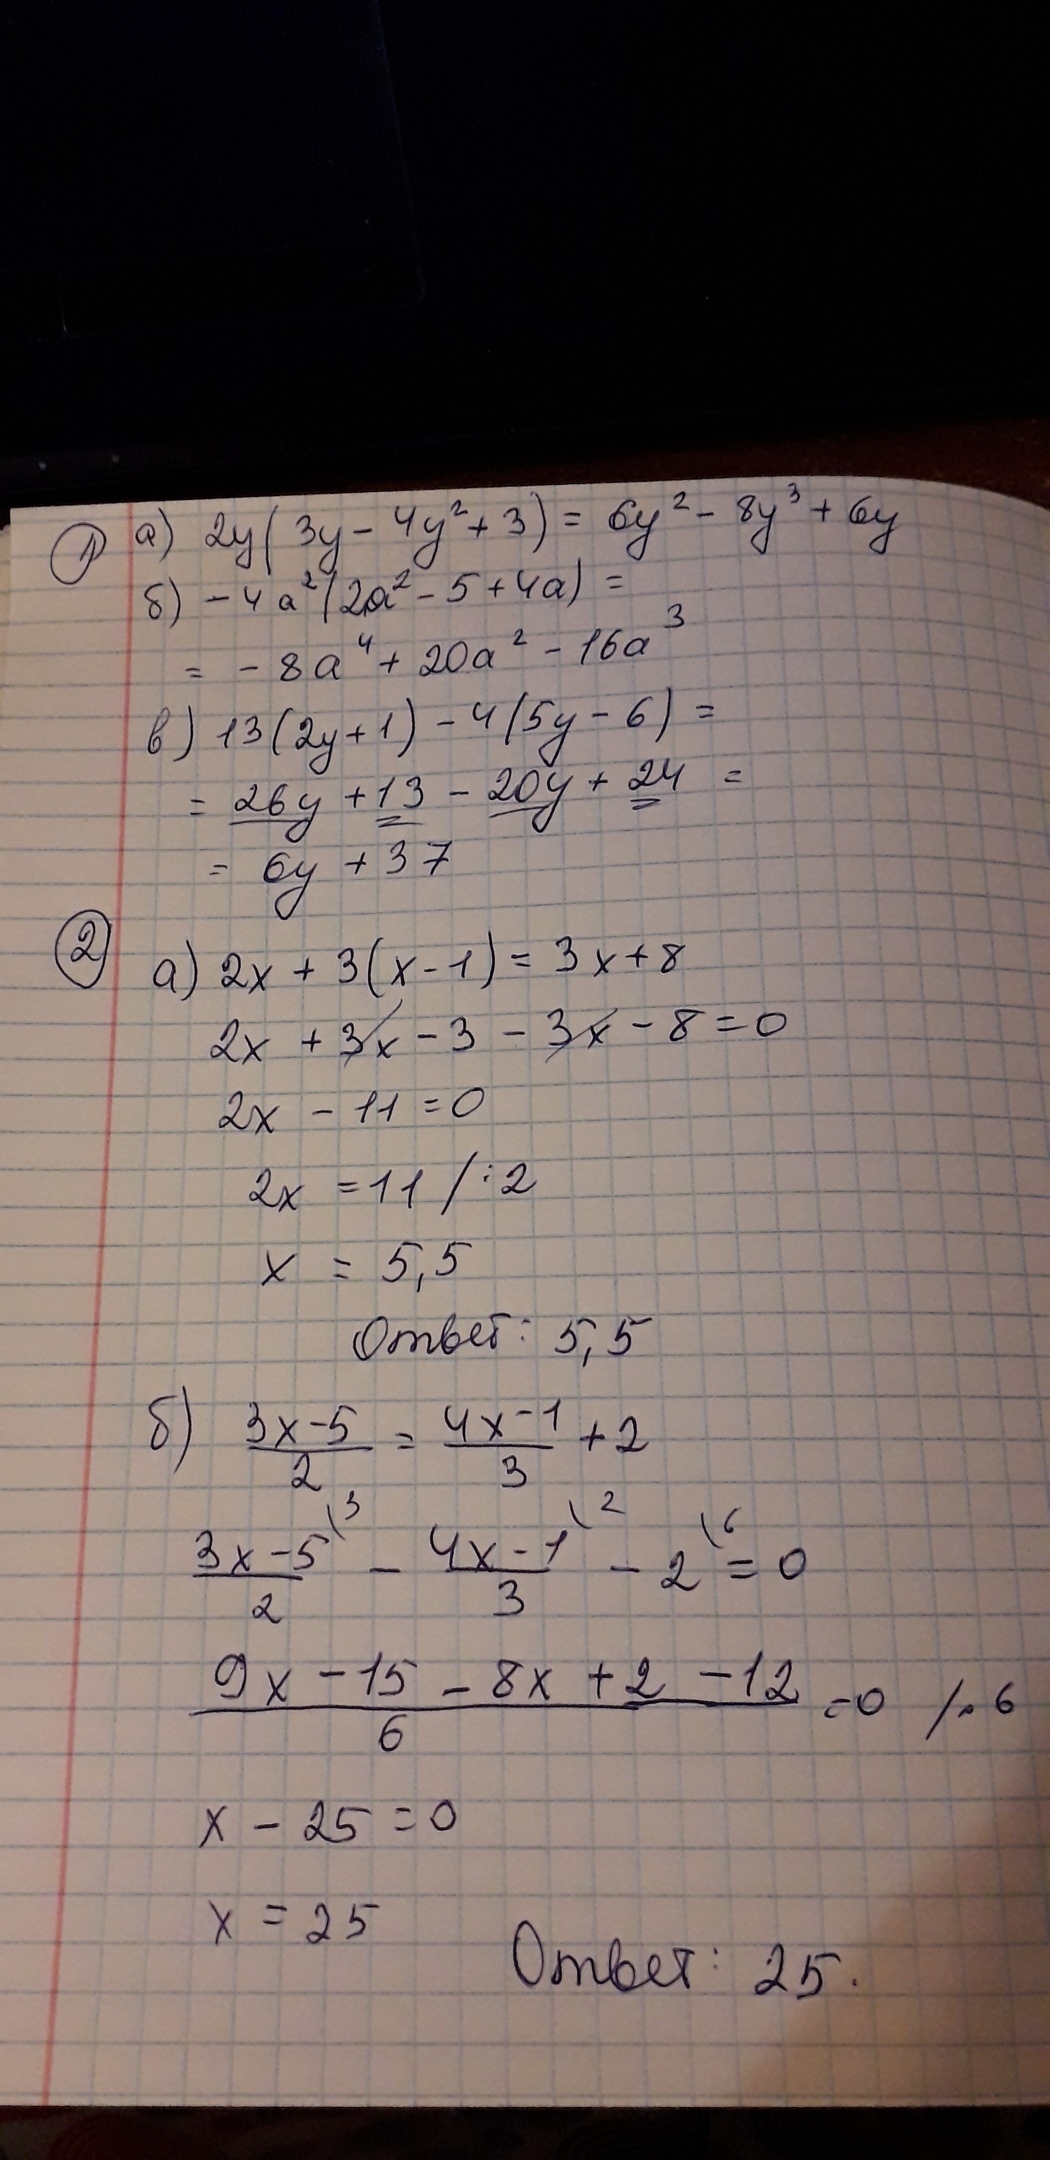 1) а) 2y(3y - 4y² + 3) = 6y² - 8y³ + 6y
б) -4a²(2a² - 5 + 4a) =
= -8a⁴ + 20a² - 16a³
в) 13(2y + 1) - 4(5y - 6) =
= 26y + 13 - 20y + 24 =
= 6y + 37
2) а) 2x + 3(x - 1) = 3x + 8
2x + 3x - 3 - 3x - 8 = 0
2x - 11 = 0
2x = 11 / : 2
x = 5,5
Ответ: 5,5
б) (3x - 5)/2 = (4x - 1)/3 + 2
(3x - 5)/2 \3 - (4x - 1)/3 \2 - 2 \6 = 0
(9x - 15 - 8x + 2 - 12)/6 = 0 / · 6
x - 25 = 0
x = 25
Ответ: 25.